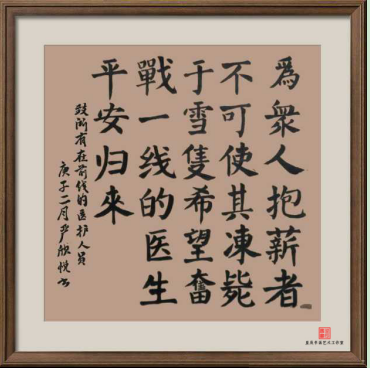 為衆人抱薪者
不可使其凍毙
于雪隻希望奮
戰一线的医生
平安归來
致所有在前线的医护人员
庚子二月严欣悦书